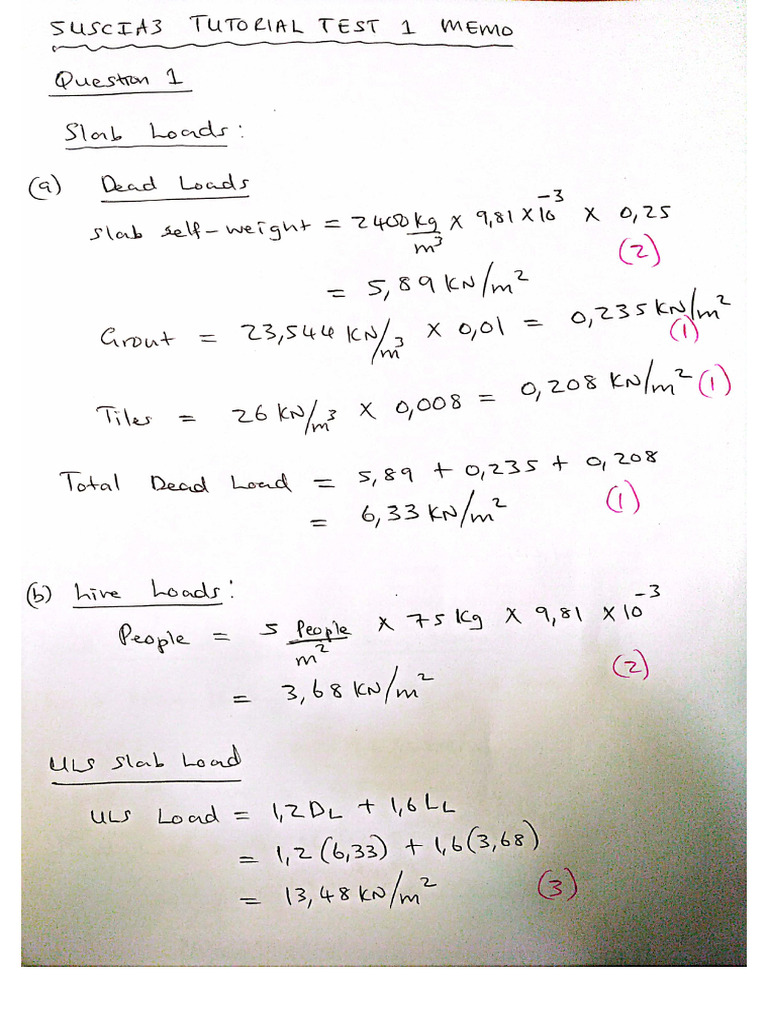 SUSCIA3 TUTORIAL TEST 1 MEMO
Question 1
Slab Loads:
(a) Dead Loads
Slab self-weight = 2400 kg/m³ × 9,81 × 10⁻³ × 0,25
(2)
= 5,89 KN/m²
Grout = 23,544 KN/m³ × 0,01 = 0,235 KN/m²
(1)
Tiles = 26 KN/m³ × 0,008 = 0,208 KN/m² (1)
Total Dead Load = 5,89 + 0,235 + 0,208
= 6,33 KN/m² (1)
(b) Live Loads:
People = 5 People/m² × 75 Kg × 9,81 × 10⁻³
(2)
= 3,68 KN/m²
ULS Slab Load
ULS Load = 1,2 D_L + 1,6 L_L
= 1,2(6,33) + 1,6(3,68)
= 13,48 KN/m² (3)